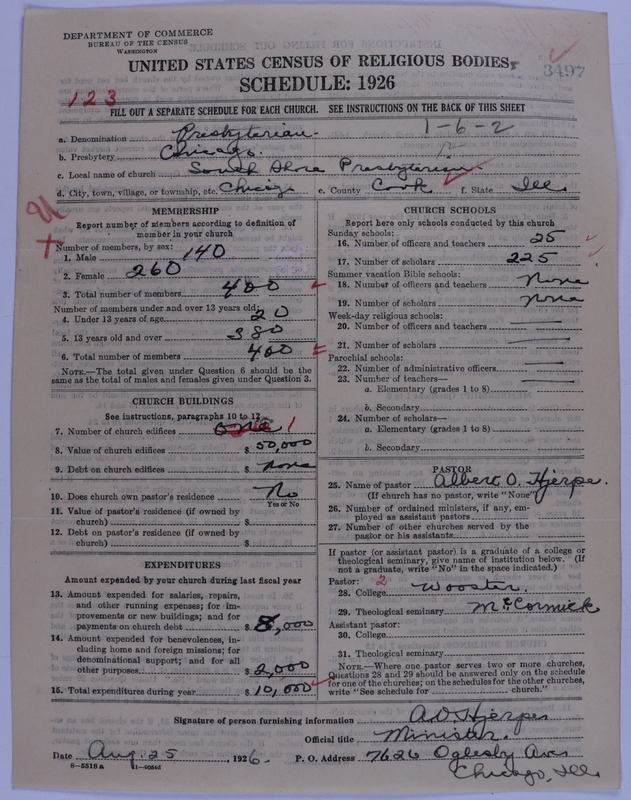 DEPARTMENT OF COMMERCE
BUREAU OF THE CENSUS
WASHINGTON
UNITED STATES CENSUS OF RELIGIOUS BODIES
3497
SCHEDULE: 1926
123
FILL OUT A SEPARATE SCHEDULE FOR EACH CHURCH. SEE INSTRUCTIONS ON THE BACK OF THIS SHEET
a. Denomination Presbyterian. 1-6-2
b. Presbytery Chicago.
c. Local name of church South Shore Presbyterian
d. City, town, village, or township, etc. Chicago e. County Cook f. State Ill
MEMBERSHIP
Report number of members according to definition of member in your church
Number of members, by sex:
1. Male 140
2. Female 260
3. Total number of members 400
Number of members under and over 13 years old:
4. Under 13 years of age 20
5. 13 years old and over 380
6. Total number of members 400
NOTE.—The total given under Question 6 should be the same as the total of males and females given under Question 3.
CHURCH BUILDINGS
See instructions, paragraphs 10 to 12
7. Number of church edifices one 1
8. Value of church edifices $ 50,000
9. Debt on church edifices $ none
10. Does church own pastor's residence No
Yes or No
11. Value of pastor's residence (if owned by
church) $
12. Debt on pastor's residence (if owned by
church) $
EXPENDITURES
Amount expended by your church during last fiscal year
13. Amount expended for salaries, repairs,
and other running expenses; for im-
provements or new buildings; and for
payments on church debt $ 8,000
14. Amount expended for benevolences, in-
cluding home and foreign missions; for
denominational support; and for all
other purposes $ 2,000
15. Total expenditures during year $ 10,000
CHURCH SCHOOLS
Report here only schools conducted by this church
Sunday schools:
16. Number of officers and teachers 25
17. Number of scholars 225
Summer vacation Bible schools:
18. Number of officers and teachers none
19. Number of scholars none
Week-day religious schools:
20. Number of officers and teachers
21. Number of scholars
Parochial schools:
22. Number of administrative officers
23. Number of teachers—
a. Elementary (grades 1 to 8)
b. Secondary
24. Number of scholars—
a. Elementary (grades 1 to 8)
b. Secondary
PASTOR
25. Name of pastor Albert O. Hjerpe.
(If church has no pastor, write "None")
26. Number of ordained ministers, if any, em-
ployed as assistant pastors
27. Number of other churches served by the
pastor or his assistants
If pastor (or assistant pastor) is a graduate of a college or
theological seminary, give name of institution below. (If
not a graduate, write "No" in the space indicated.)
Pastor: 2
28. College Wooster.
29. Theological seminary McCormick
Assistant pastor:
30. College
31. Theological seminary
NOTE.—Where one pastor serves two or more churches,
Questions 28 and 29 should be answered only on the schedule
for one of the churches; on the schedules for the other churches,
write "See schedule for church."
Signature of person furnishing information A. O. Hjerpe
Official title Minister.
Date Aug. 25, 1926. P. O. Address 7626 Oglesby Ave
Chicago, Ill
8-5518 a